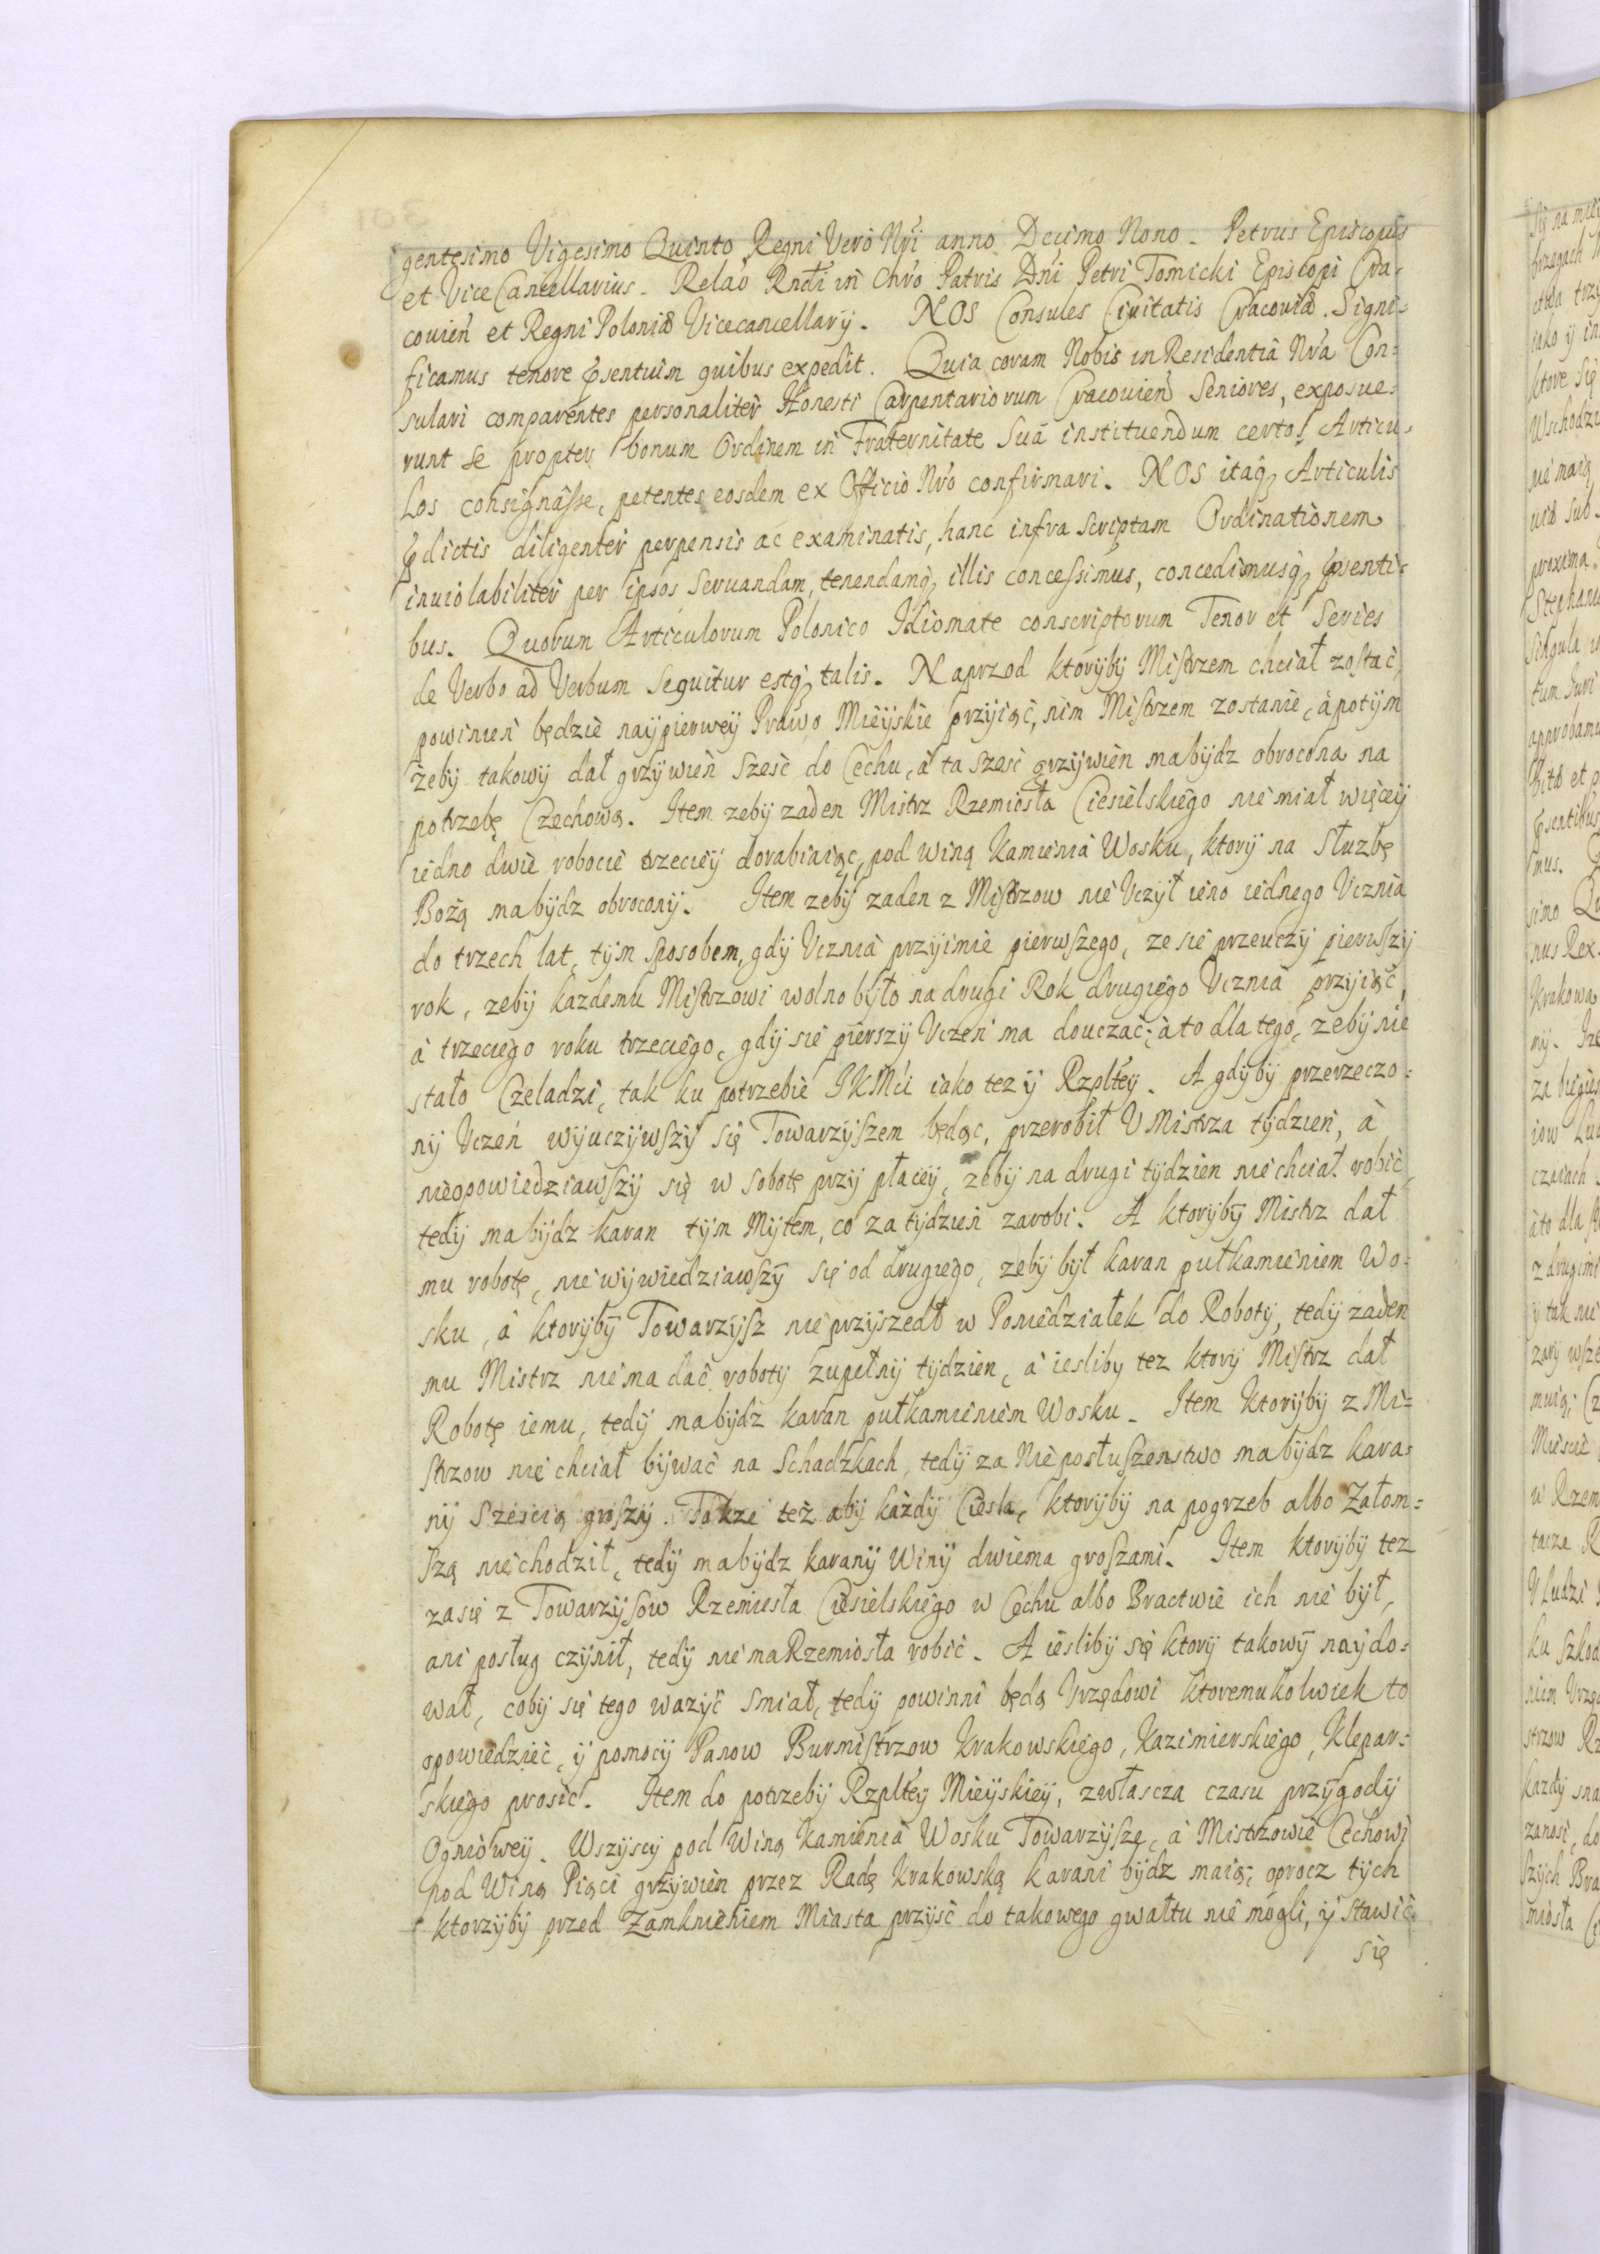 gentesimo Vigesimo Quinto, Regni Vero Nri anno Decimo Nono. Petrus Episcopus
et ViceCancellarius. Relao Rndi in Chro Patris Dni Petri Tomicki Episcopi Cra-
couien et Regni Poloniæ Vicecancellarij. NOS Consules Ciuitatis Cracouiæ. Signi-
ficamus tenore ꝑsentium quibus expedit. Quia coram Nobis in Residentiâ Nrâ Con-
sulari comparentes personaliter Honesti Carpentariorum Cracouien Seniores, exposue-
runt se propter bonum Ordinem in Fraternitate Suâ instituendum certos Articu-
Los consignâsse, petentes eosdem ex Officio Nro confirmari. NOS itaq, Articulis
ꝑdictis diligenter perpensis ac examinatis, hanc infra scriptam Ordinationem
inuiolabiliter per ipsos seruandam, tenendamq, illis concessimus, concedimusq, ꝑsenti-
bus. Quorum Articulorum Polonico Idiomate conscriptorum Tenor et Series
de Verbo ad Verbum sequitur estq, talis. Naprzod ktoryby Mistrzem chciał zostać,
powinien będzie naypierwey Prawo Mieyskie przyiąć, nim Mistrzem zostanie, à potym
żeby takowy dał grzywien sześć do Cechu, à ta sześć grzywien ma bydz obrocona na
potrzebę Czechową. Item zeby zaden Mistrz Rzemiosła Ciesielskiego nie miał więcey
iedno dwie robocie trzeciey dorabiaiąc, pod winą Kamienia Wosku, ktory na Służbę
Bożą ma bydz obrocony. Item zeby zaden z Mistrzow nie Vczył ieno iednego Vcznia
do trzech lat, tym sposobem, gdy Vcznia przyimie pierwszego, ze sie przeuczy pierwszy
rok, zeby kazdemu Mistrzowi wolno było na drugi Rok drugiego Vcznia przyiąć,
à trzeciego roku trzeciego, gdy sie pierszy Vczen ma douczać; à to dla tego, zeby nie
stało Czeladzi, tak ku potrzebie IKMci iako tez y Rzpltey. A gdyby przerzeczo-
ny Vczeń wyuczywszy się Towarzyszem będąc, przerobił V Mistrza tydzień, à
nieopowiedziawszy się w sobotę przy płacey, zeby na drugi tydzien nie chciał robić,
tedy ma bydz karan tym Mytem, co za tydzień zarobi. A ktoryby Mistrz dał
mu robotę, nie wywiedziawszy się od drugiego, zeby był karan pułkamieniem Wo-
sku, à ktoryby Towarzysz nie przyszedł w Poniedziałek do Roboty, tedy zaden
mu Mistrz nie ma dać roboty zupełny tydzien, à iesliby tez ktory Mistrz dał
Robotę iemu, tedy ma bydz karan pułkamieniem Wosku. Item ktoryby z Mi-
strzow nie chciał bywać na Schadzkach, tedy za Nieposłuszenstwo ma bydz kara-
ny sześcią groszy. Takze też aby każdy Ciesla, ktoryby na pogrzeb albo Załom-
szą nie chodził, tedy ma bydz karany Winy dwiema groszami. Item ktoryby tez
zasię z Towarzysow Rzemiesła Ciesielskiego w Cechu albo Bractwie ich nie był,
ani posług czynił, tedy nie ma Rzemiosła robić. A iesliby się ktory takowy naydo-
wał, coby się tego wazyć smiał, tedy powinni będą Vrzędowi ktoremukolwiek to
opowiedzieć, y pomocy Panow Burmistrzow Krakowskiego, Kazimierskiego, Klepar-
skiego prosić. Item do potrzeby Rzpltey Mieyskiey, zwłascza czasu przygody
Ogniowey. Wszyscy pod Winą Kamienia Wosku Towarzysze, à Mistrzowie Cechowi
pod Winą Piąci grzywien przez Radę Krakowską karani bydz maią; oprocz tych
ktorzyby przed Zamknieniem Miasta przyść do takowego gwałtu nie mogli, y stawić
się